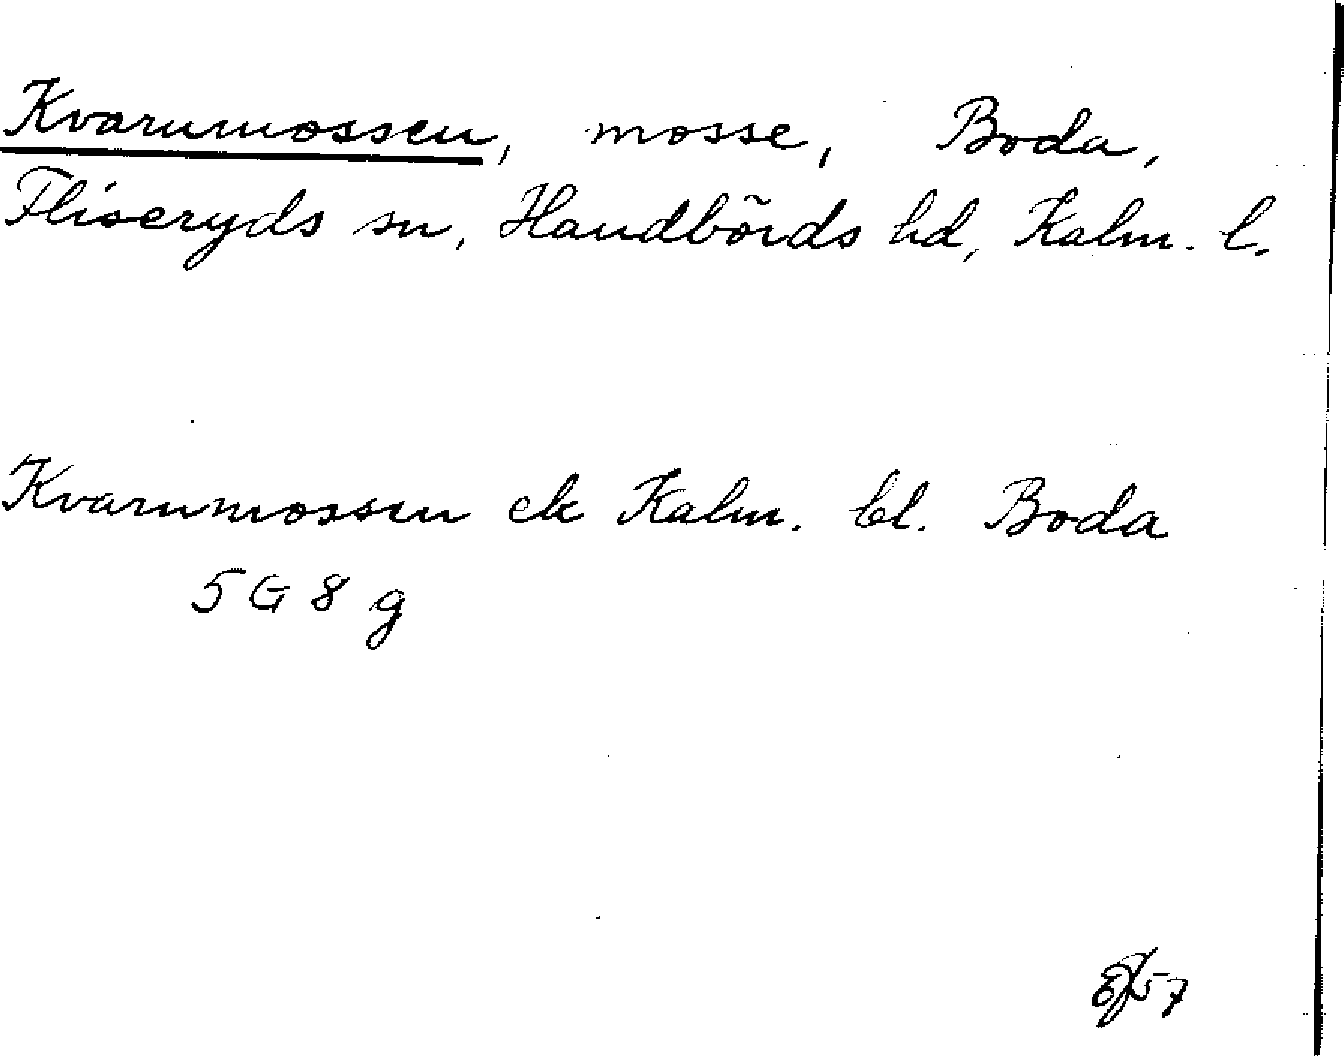 Kvarnmossen, mosse, Boda,
Fliseryds sn, Handbörds hd, Kalm. l.
Kvarnmossen ek Kalm. bl. Boda
5 G 8 g
57